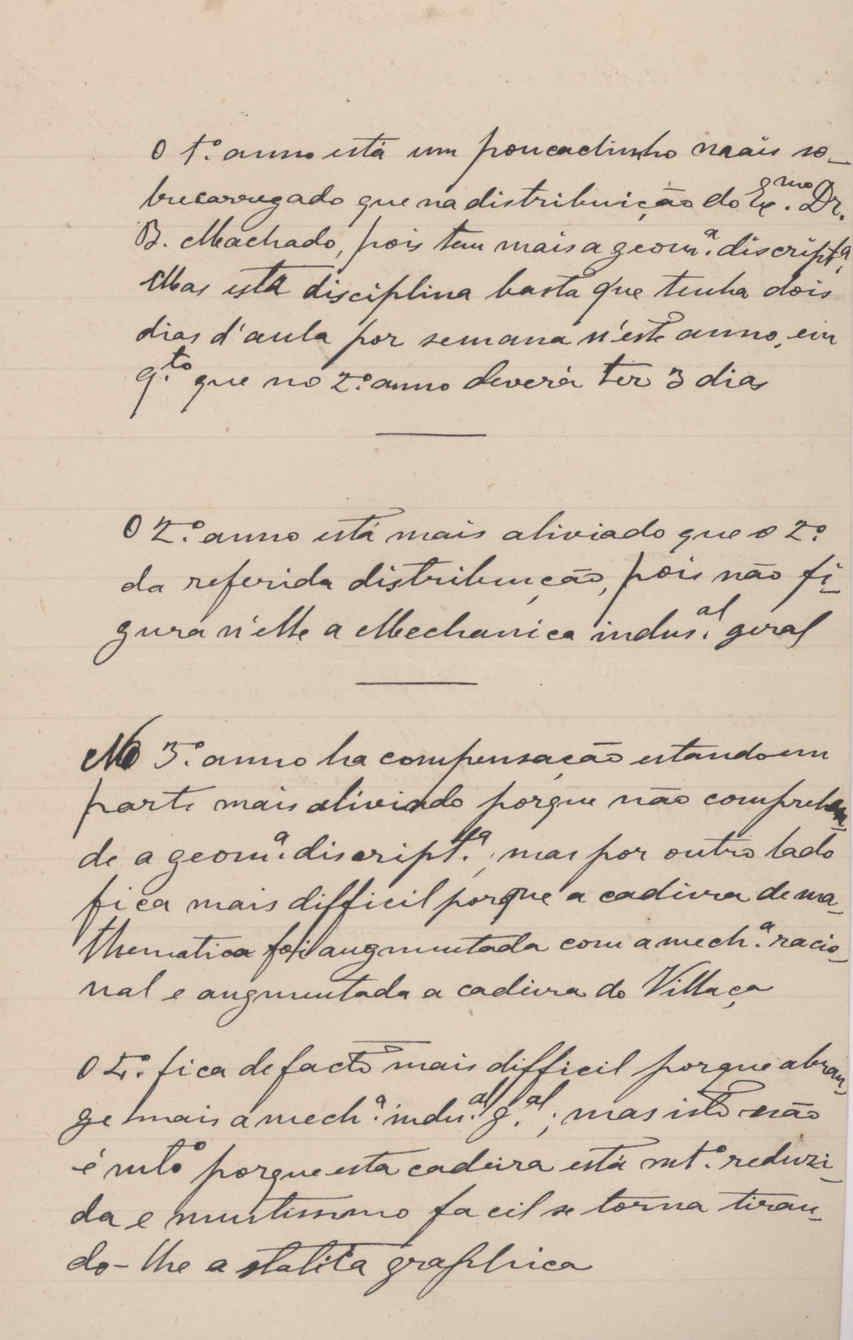 O 1.º anno está um poucadinho mais so-
brecarregado que na distribuição do Ex.mo Dr.
B. Machado, pois tem mais a geom.a discript.a
Mas esta disciplina basta que tenha dois
dias d'aula por semana n'este anno, em
q.to que no 2.º anno deverá ter 3 dias
O 2.º anno está mais aliviado que o 2.º
da referida distribuição, pois não fi-
gura n'elle a Mechanica indus.al geral
No 3.º anno ha compensação estando em
parte mais aliviado porque não comprehen-
de a geom.a discript.a, mas por outro lado
fica mais difficil porque a cadeira de ma-
thematica foi augmentada com a mech.a racio-
nal e augmentada a cadeira do Villaça
O 4.º fica de facto mais difficil porque abran-
ge mais a mech.a indus.al g.al; mas isto não
é mto porque esta cadeira está mt.º reduzi-
da e muitissimo facil se torna tiran-
do-lhe a statica graphica